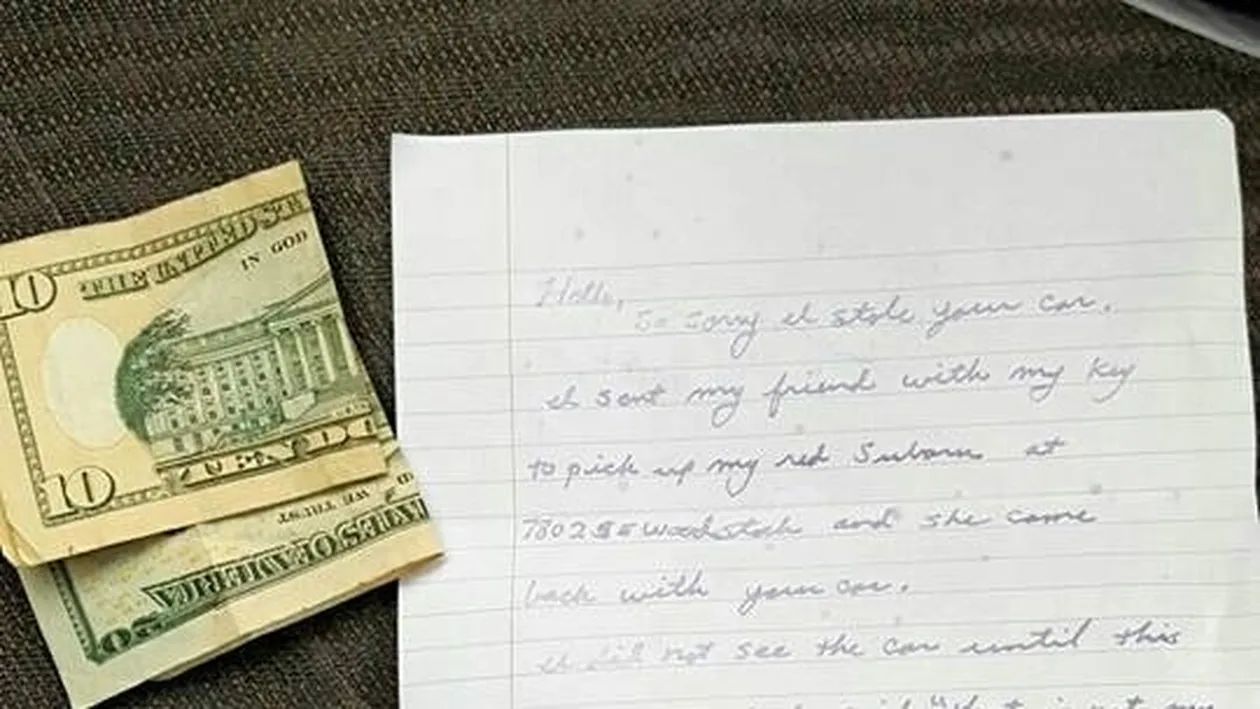 THE UNITED STA
10
IN GOD
10
WE TRUST
ATES OF AMERICA
Hello,
So sorry I stole your car.
I sent my friend with my key
to pick up my red Subaru at
7802 SE Woodstock and she came
back with your car.
I did not see the car until this
"that is not my